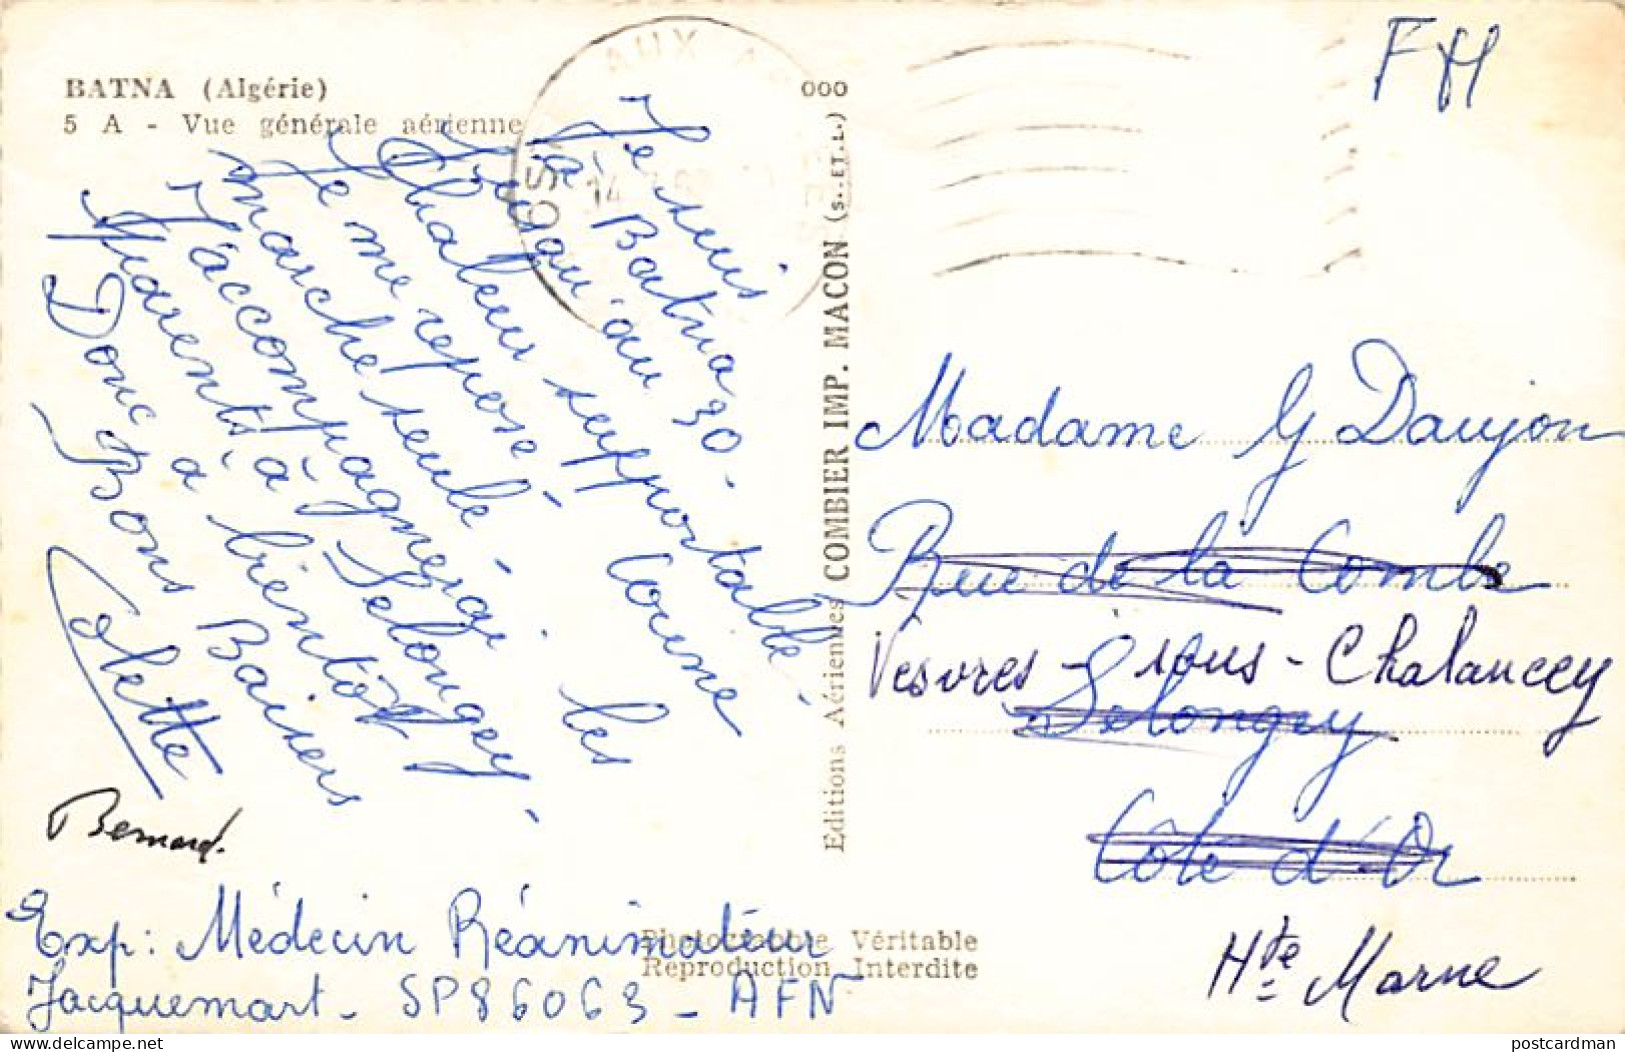 BATNA (Algérie)
5 A - Vue générale aérienne
000
Je suis
à Batna
Jusqu'au 30 -
Chaleur supportable -
Je me repose. Louise
marche seule -
J'accompagnerai les
parents à Selongey -
Donc à bientôt
Bons Baisers
Colette
Bernard.
Exp: Médecin Réanimateur
Jacquemart - SP86063 - AFN
Editions Aériennes COMBIER IMP. MACON (S.-ET-L.)
Photographie Véritable
Reproduction Interdite
AUX
14
FM
Madame G Daujon
Rue de la Combe
Vesvres - sous - Chalancey
Selongey
Côte d'Or
Hte Marne
delcampe.net
postcardman